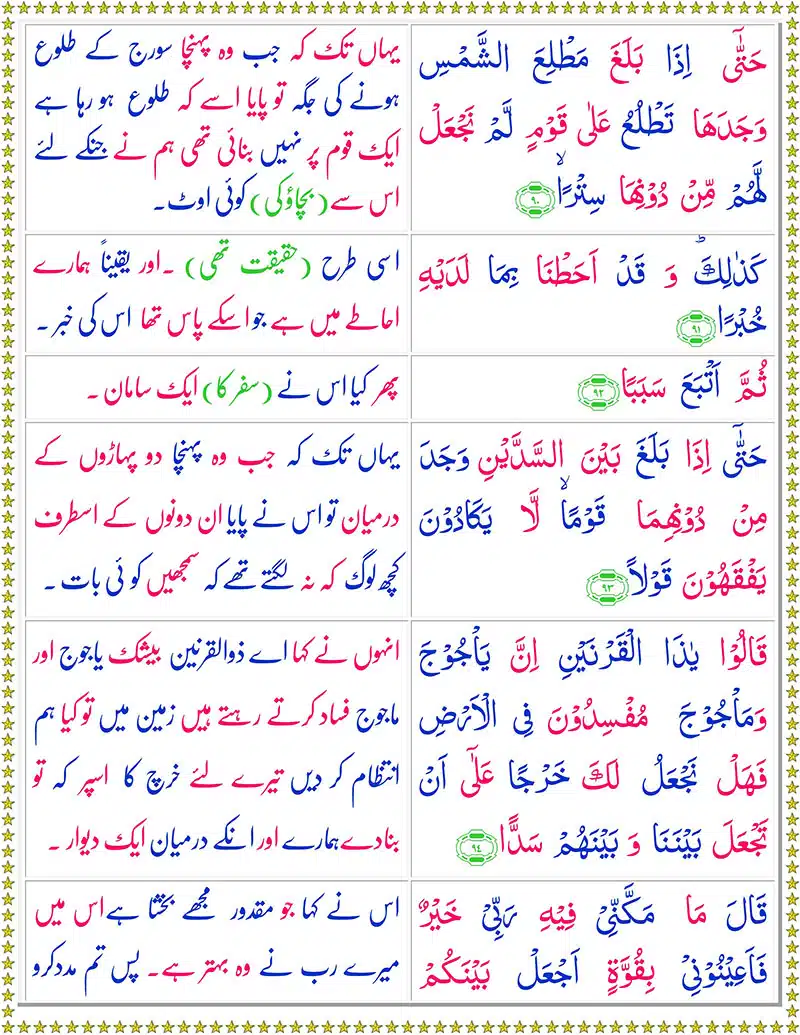 حَتّٰۤی اِذَا بَلَغَ مَطْلِعَ الشَّمْسِ
وَجَدَهَا تَطْلُعُ عَلٰی قَوْمٍ لَّمْ نَجْعَلْ
لَّهُمْ مِّنْ دُوْنِهَا سِتْرًاۙ ۹۰
یہاں تک کہ جب وہ پہنچا سورج کے طلوع
ہونے کی جگہ تو پایا اسے کہ طلوع ہو رہا ہے
ایک قوم پر نہیں بنائی تھی ہم نے جنکے لئے
اس سے (بچاؤ کی) کوئی اوٹ۔
کَذٰلِكَؕ وَ قَدْ اَحَطْنَا بِمَا لَدَیْهِ
خُبْرًا ۹۱
اسی طرح (حقیقت تھی)۔ اور یقیناً ہمارے
احاطے میں ہے جو اسکے پاس تھا اس کی خبر۔
ثُمَّ اَتْبَعَ سَبَبًا ۹۲
پھر کیا اس نے (سفر کا) ایک سامان۔
حَتّٰۤی اِذَا بَلَغَ بَیْنَ السَّدَّیْنِ وَجَدَ
مِنْ دُوْنِهِمَا قَوْمًاۙ لَّا یَکَادُوْنَ
یَفْقَهُوْنَ قَوْلًا ۹۳
یہاں تک کہ جب وہ پہنچا دو پہاڑوں کے
درمیان تو اس نے پایا ان دونوں کے اسطرف
کچھ لوگ کہ نہ لگتے تھے کہ سمجھیں کوئی بات۔
قَالُوْا یٰذَا الْقَرْنَیْنِ اِنَّ یَاْجُوْجَ
وَمَاْجُوْجَ مُفْسِدُوْنَ فِی الْاَرْضِ
فَهَلْ نَجْعَلُ لَكَ خَرْجًا عَلٰۤی اَنْ
تَجْعَلَ بَیْنَنَا وَ بَیْنَهُمْ سَدًّا ۹٤
انہوں نے کہا اے ذوالقرنین بیشک یاجوج اور
ماجوج فساد کرتے رہتے ہیں زمین میں تو کیا ہم
انتظام کر دیں تیرے لئے خرچ کا اسپر کہ تو
بنادے ہمارے اور انکے درمیان ایک دیوار۔
قَالَ مَا مَکَّنِّیْ فِیْهِ رَبِّیْ خَیْرٌ
فَاَعِیْنُوْنِیْ بِقُوَّةٍ اَجْعَلْ بَیْنَکُمْ
اس نے کہا جو مقدور مجھے بخشا ہے اس میں
میرے رب نے وہ بہتر ہے۔ پس تم مدد کرو